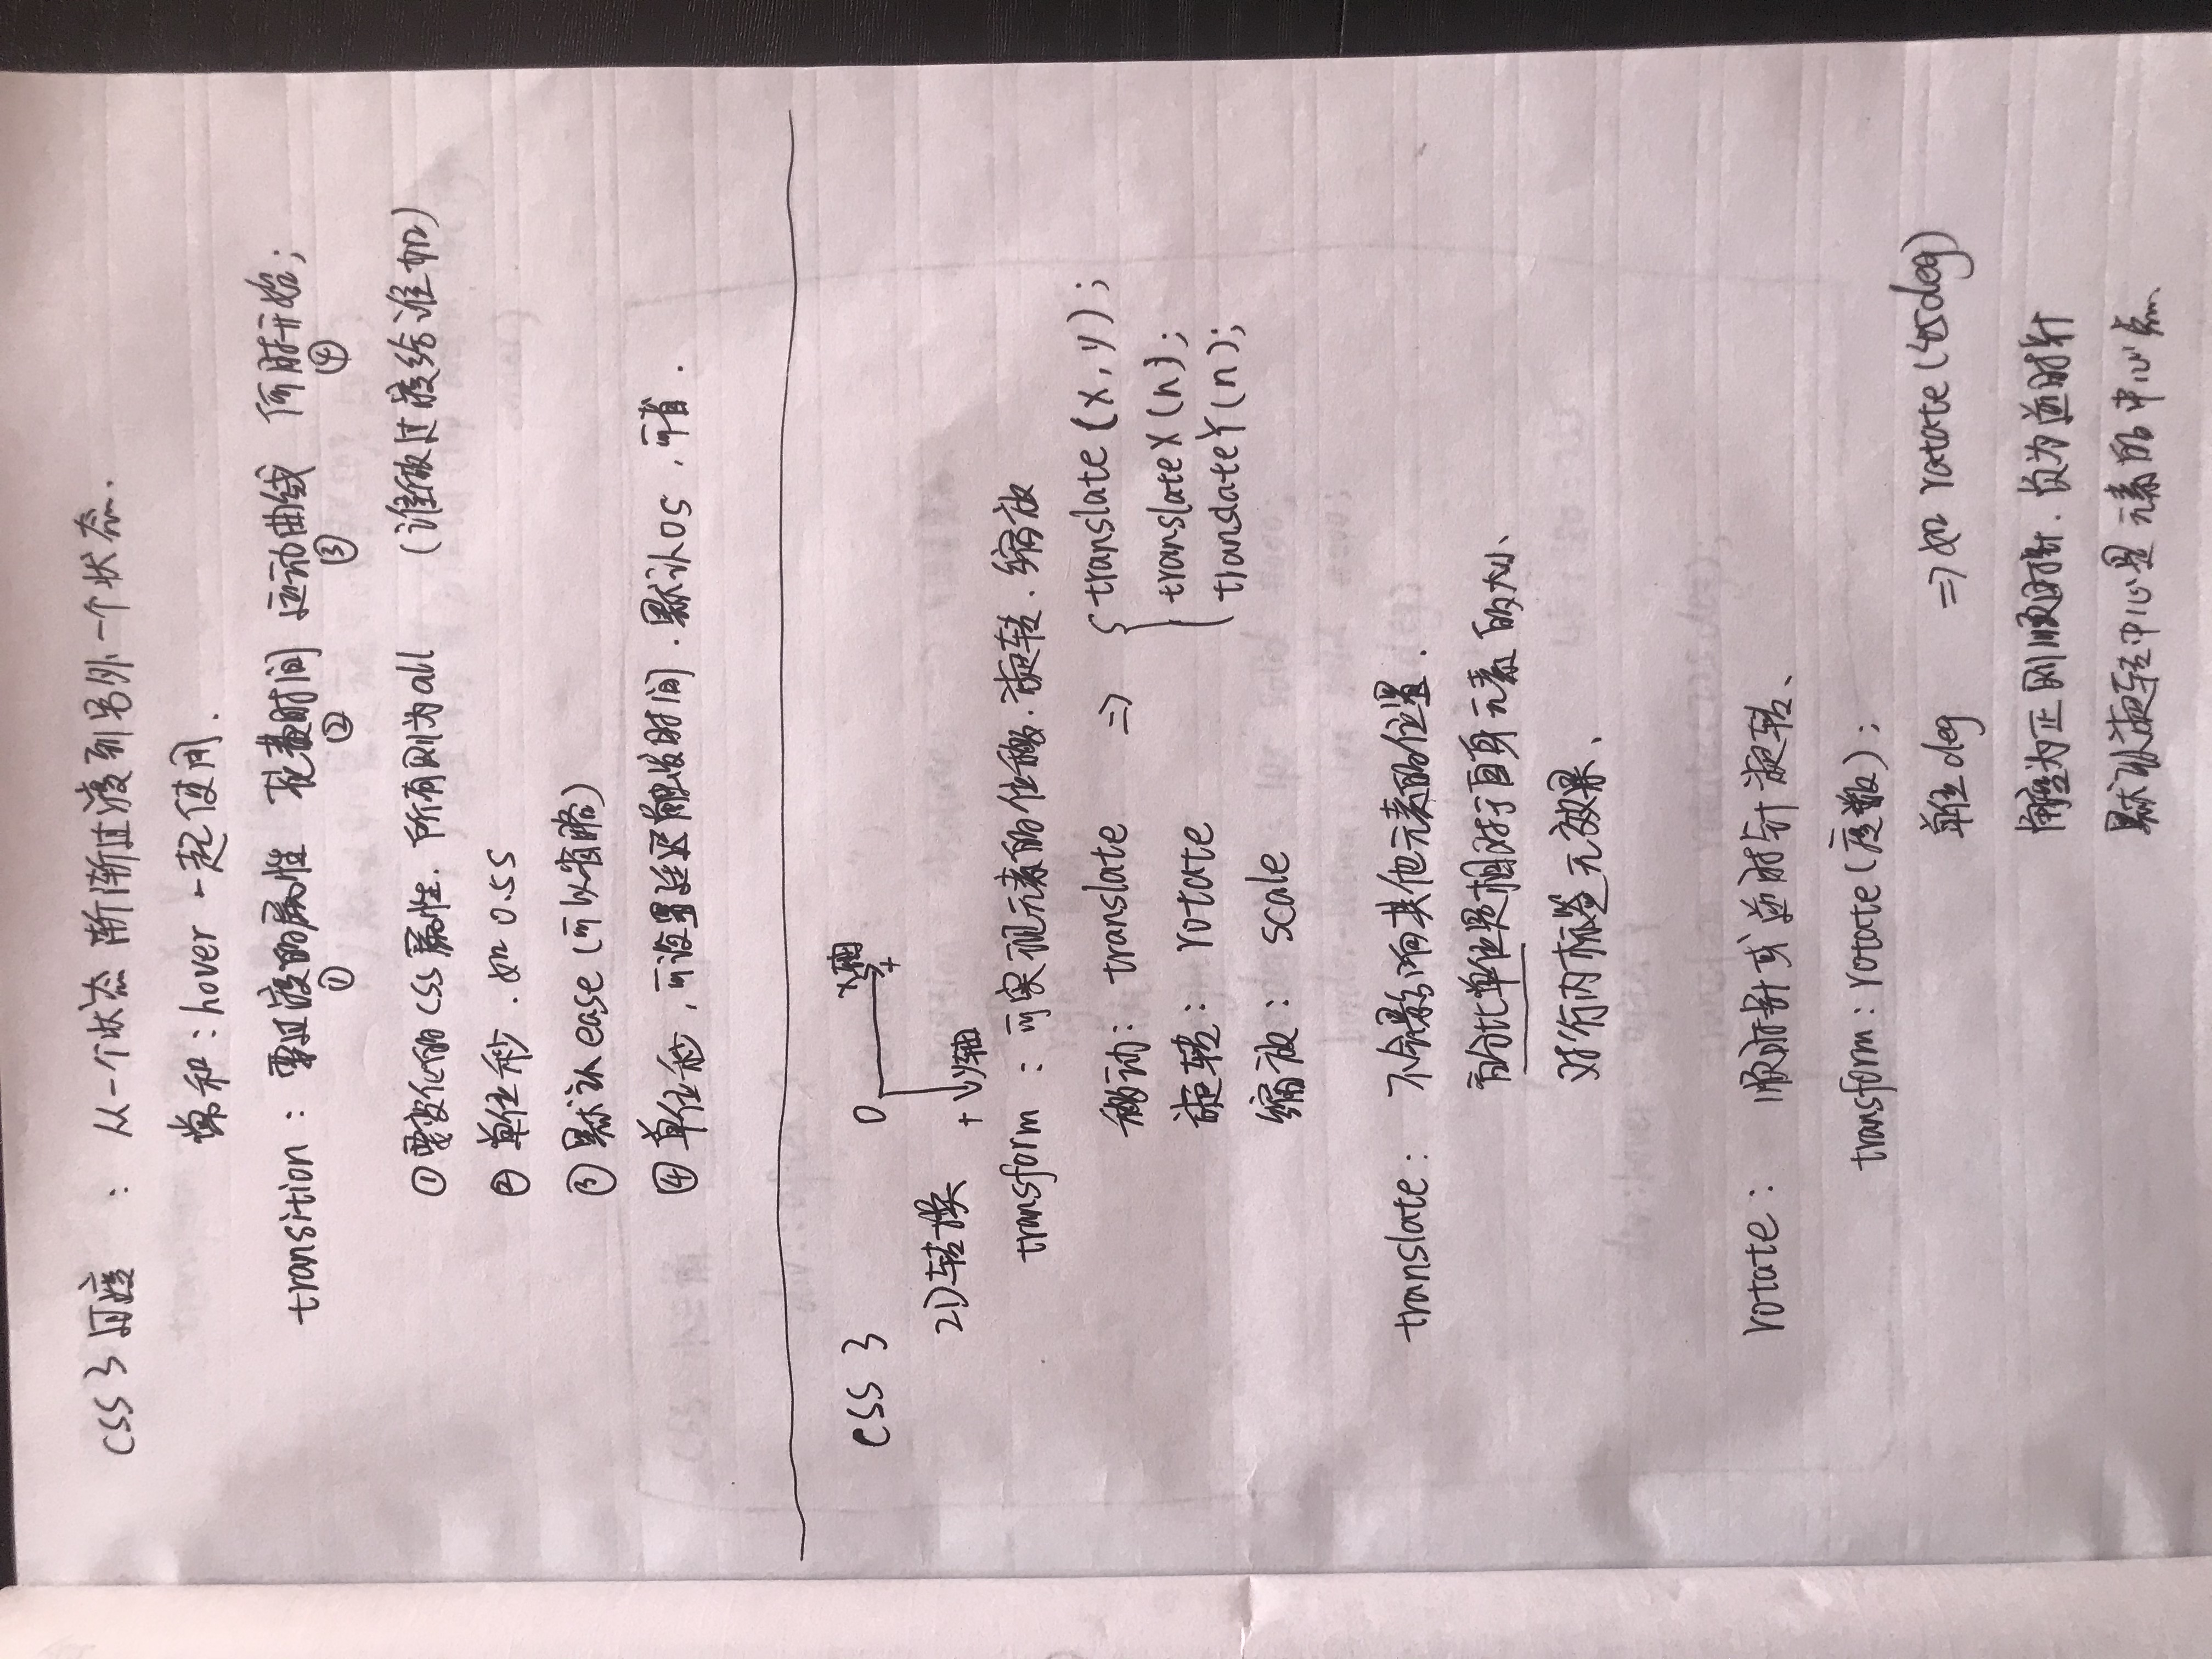 css3过渡 : 从一个状态 渐渐过渡到另外一个状态.
常和:hover 一起使用.
transition : 要过渡的属性 花费时间 运动曲线 何时开始;
① ② ③ ④
① 要变化的css属性. 所有则为all (谁做过渡给谁加)
② 单位秒 . 如0.5s
③ 默认ease (可以省略)
④ 单位秒 , 可设置延迟触发时间 . 默认0s , 可省 .
css 3 0 x轴
+
2D转换 + y轴
transform : 可实现元素的位移. 旋转. 缩放
移动: translate => { translate (x, y);
translateX (n);
旋转: rotate
translateY (n);
缩放: scale
translate : 不会影响其他元素的位置 .
百分比单位是相对于自身元素的大小、
对行内标签无效果、
rotate : 顺时针或逆时针旋转、
transform : rotate (度数) ;
单位deg => 如 rotate (45deg)
角度为正则顺时针. 负为逆时针
默认旋转中心是元素的中心点、